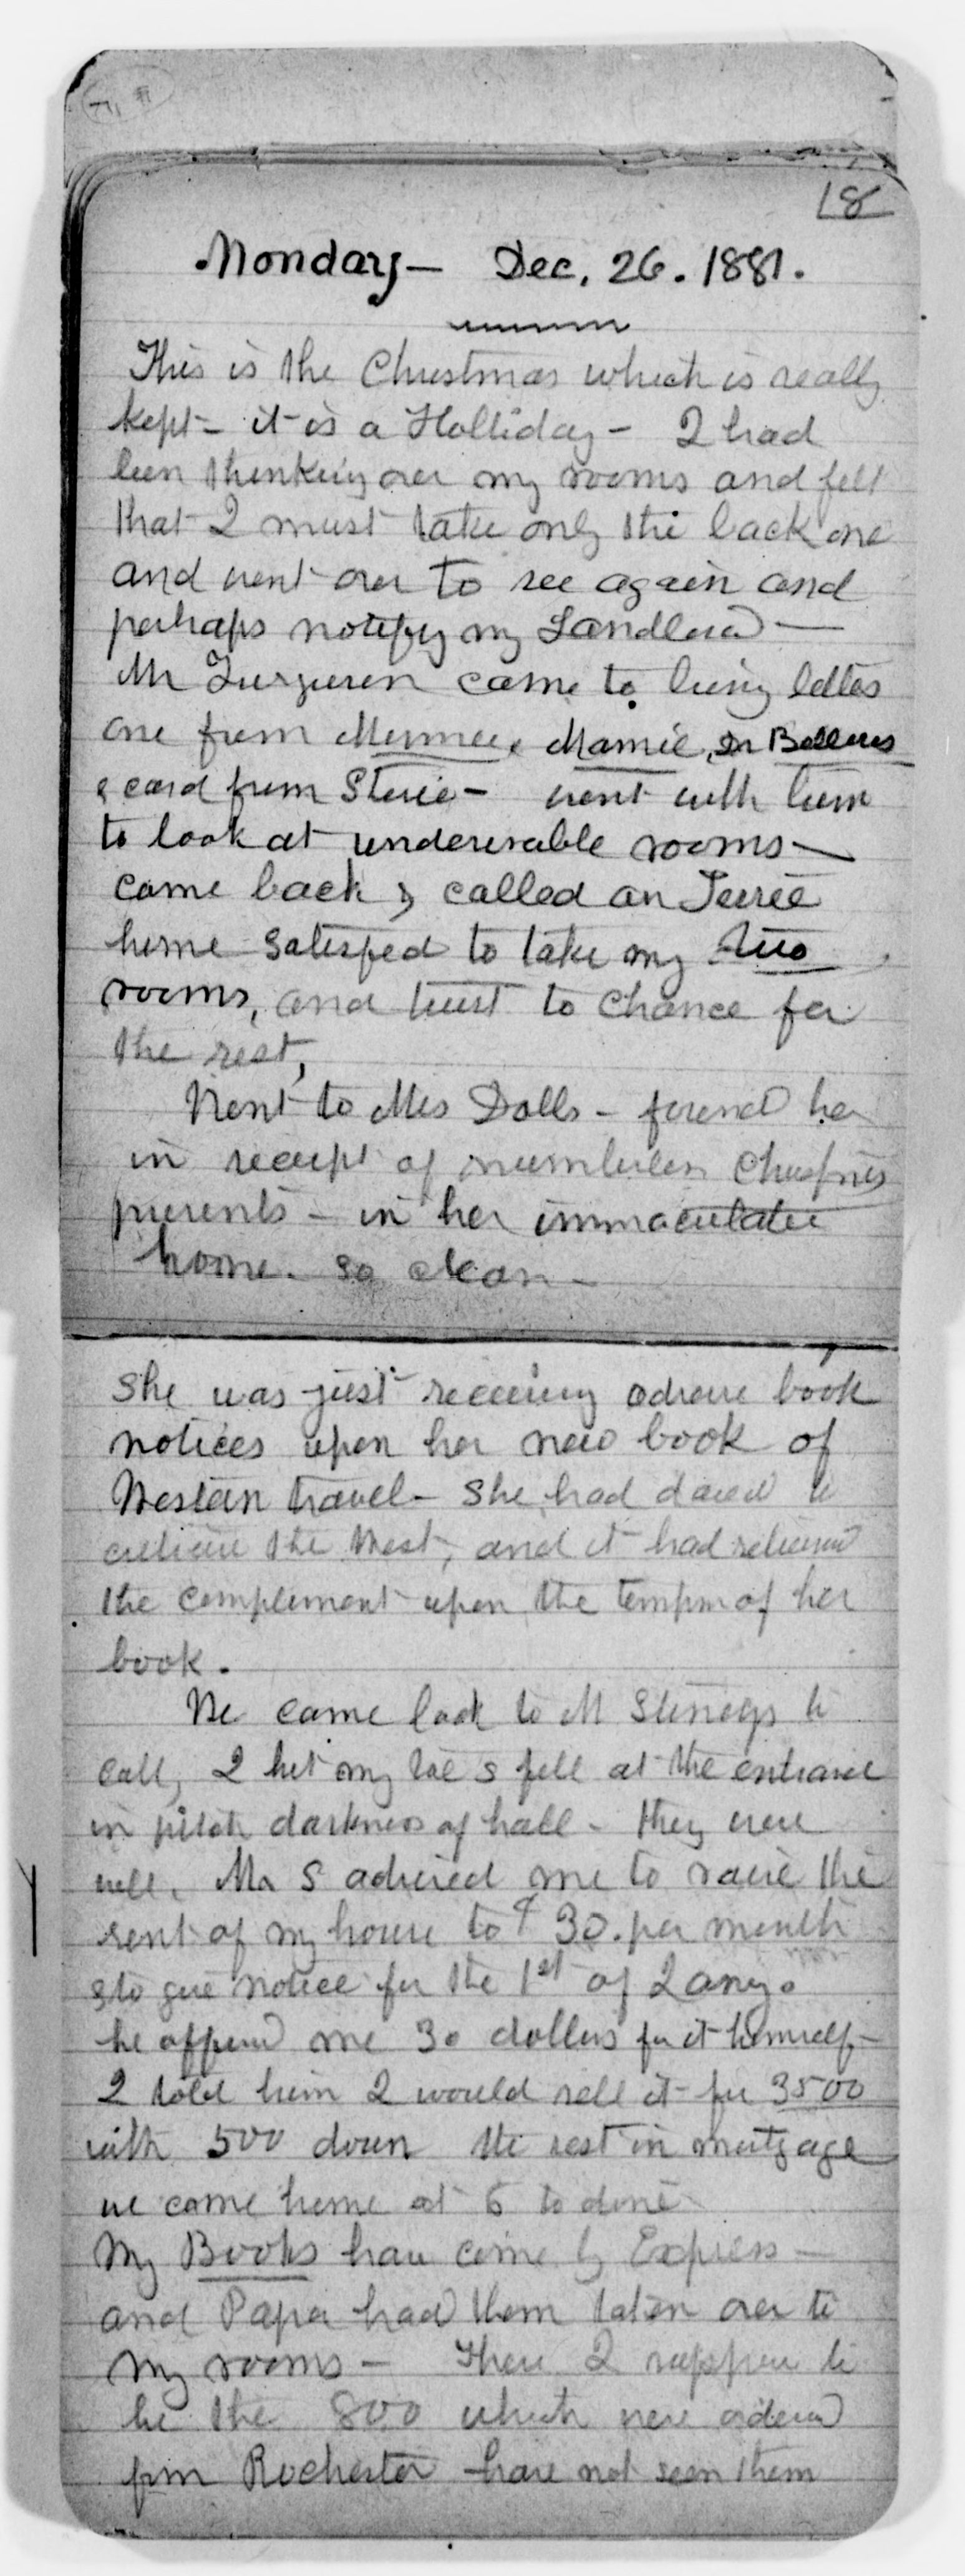 18
Monday — Dec. 26. 1881.
This is the Christmas which is really
kept - it is a Holliday - I had
been thinking over my rooms and felt
that I must take only the back one
and went over to see again and
perhaps notify my Landlord —
Mr Furguren came to bring letters
one from Minnee, Mamie, Dr Bellows
& card from Stevie - went with him
to look at undersirable rooms —
came back & called on
home satisfied to take my two
rooms, and trust to chance for
the rest,
Went to Mrs Dalls - found her
in receipt of numberless
presents - in her immaculate
home. so clean -
She was just receiving adverse book
notices upon her new book of
Western travel - She had dared to
criticise the West, and it had returned
the complement upon the of her
book.
We came back to M to
call, I hit my toe & fell at the entrance
in pitch darkness of hall - they were
well. Mr S advised me to raise the
rent of my house to $30. per month
& to give notice for the 1st of Jany.
he offered me 30 dollars for it himself -
I told him I would sell it for 3500
with 500 down the rest in mortgage
we came home at 6 to dine
My Books have come by Express —
and Papa had them taken over to
my rooms - These I suppose to
be the 800 which were ordered
from Rochester have not seen them